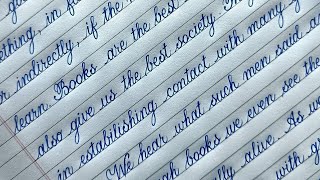 good, in fa
ething, in
or indirectly, if the
learn. Books are the best society. In
also give us the best
in estabilishing contact with many
We hear what such men said an
ugh books we even see the
ally alive. As we
with g